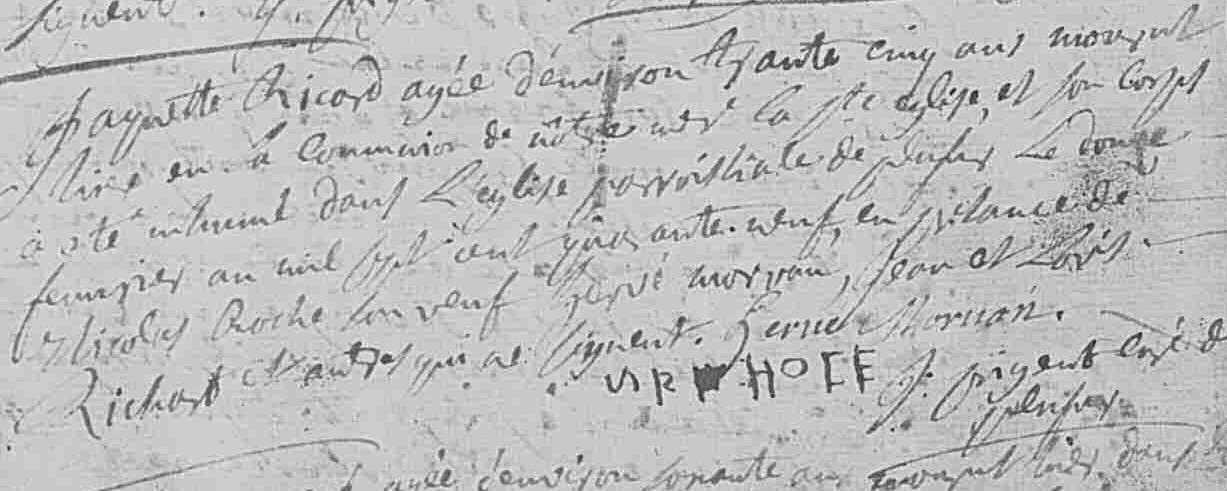 signent.
Jaquette Ricard agée d'environ trante cinq ans mourut
hier en la Communion de nôtre mere la Ste eglise, et son Corps
a été inhumé dans L'eglise parroissiale de Le douze
fevrier an mil sept cent quarante-neuf, en présance de
Nicolas Roche son veuf Hervé morvan, Jean et Loüis
Richart et autres qui ne signent. Herve Morvan.
J: pigent Curé de
agée d'environ soixante ans mourut hier dans